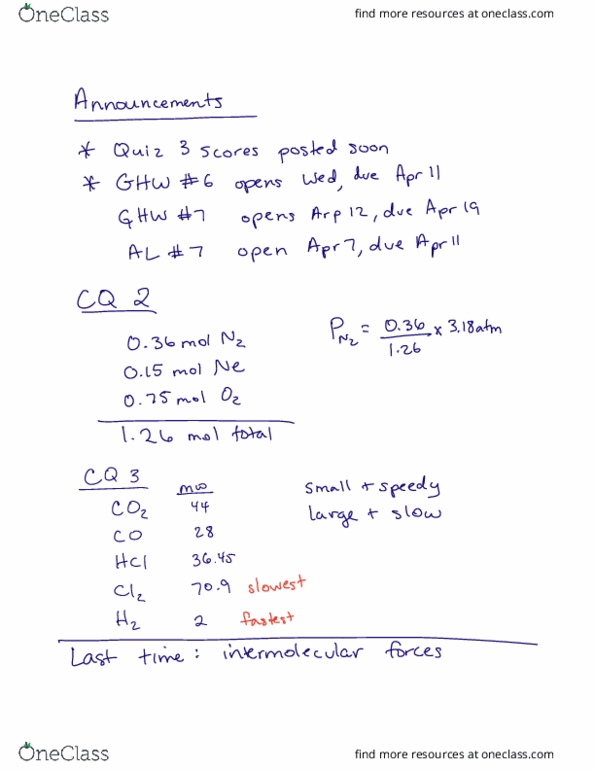 OneClass find more resources at oneclass.com
Announcements
* Quiz 3 scores posted soon
* GHW #6 opens Wed, due Apr 11
GHW #7 opens Arp 12, due Apr 19
AL #7 open Apr 7, due Apr 11
CQ 2
0.36 mol N₂
0.15 mol Ne
0.75 mol O₂
1.26 mol total
P_N₂ = 0.36/1.26 × 3.18 atm
CQ 3
mw
CO₂ 44
CO 28
HCl 36.45
Cl₂ 70.9 slowest
H₂ 2 fastest
small + speedy
large + slow
Last time: intermolecular forces
OneClass find more resources at oneclass.com